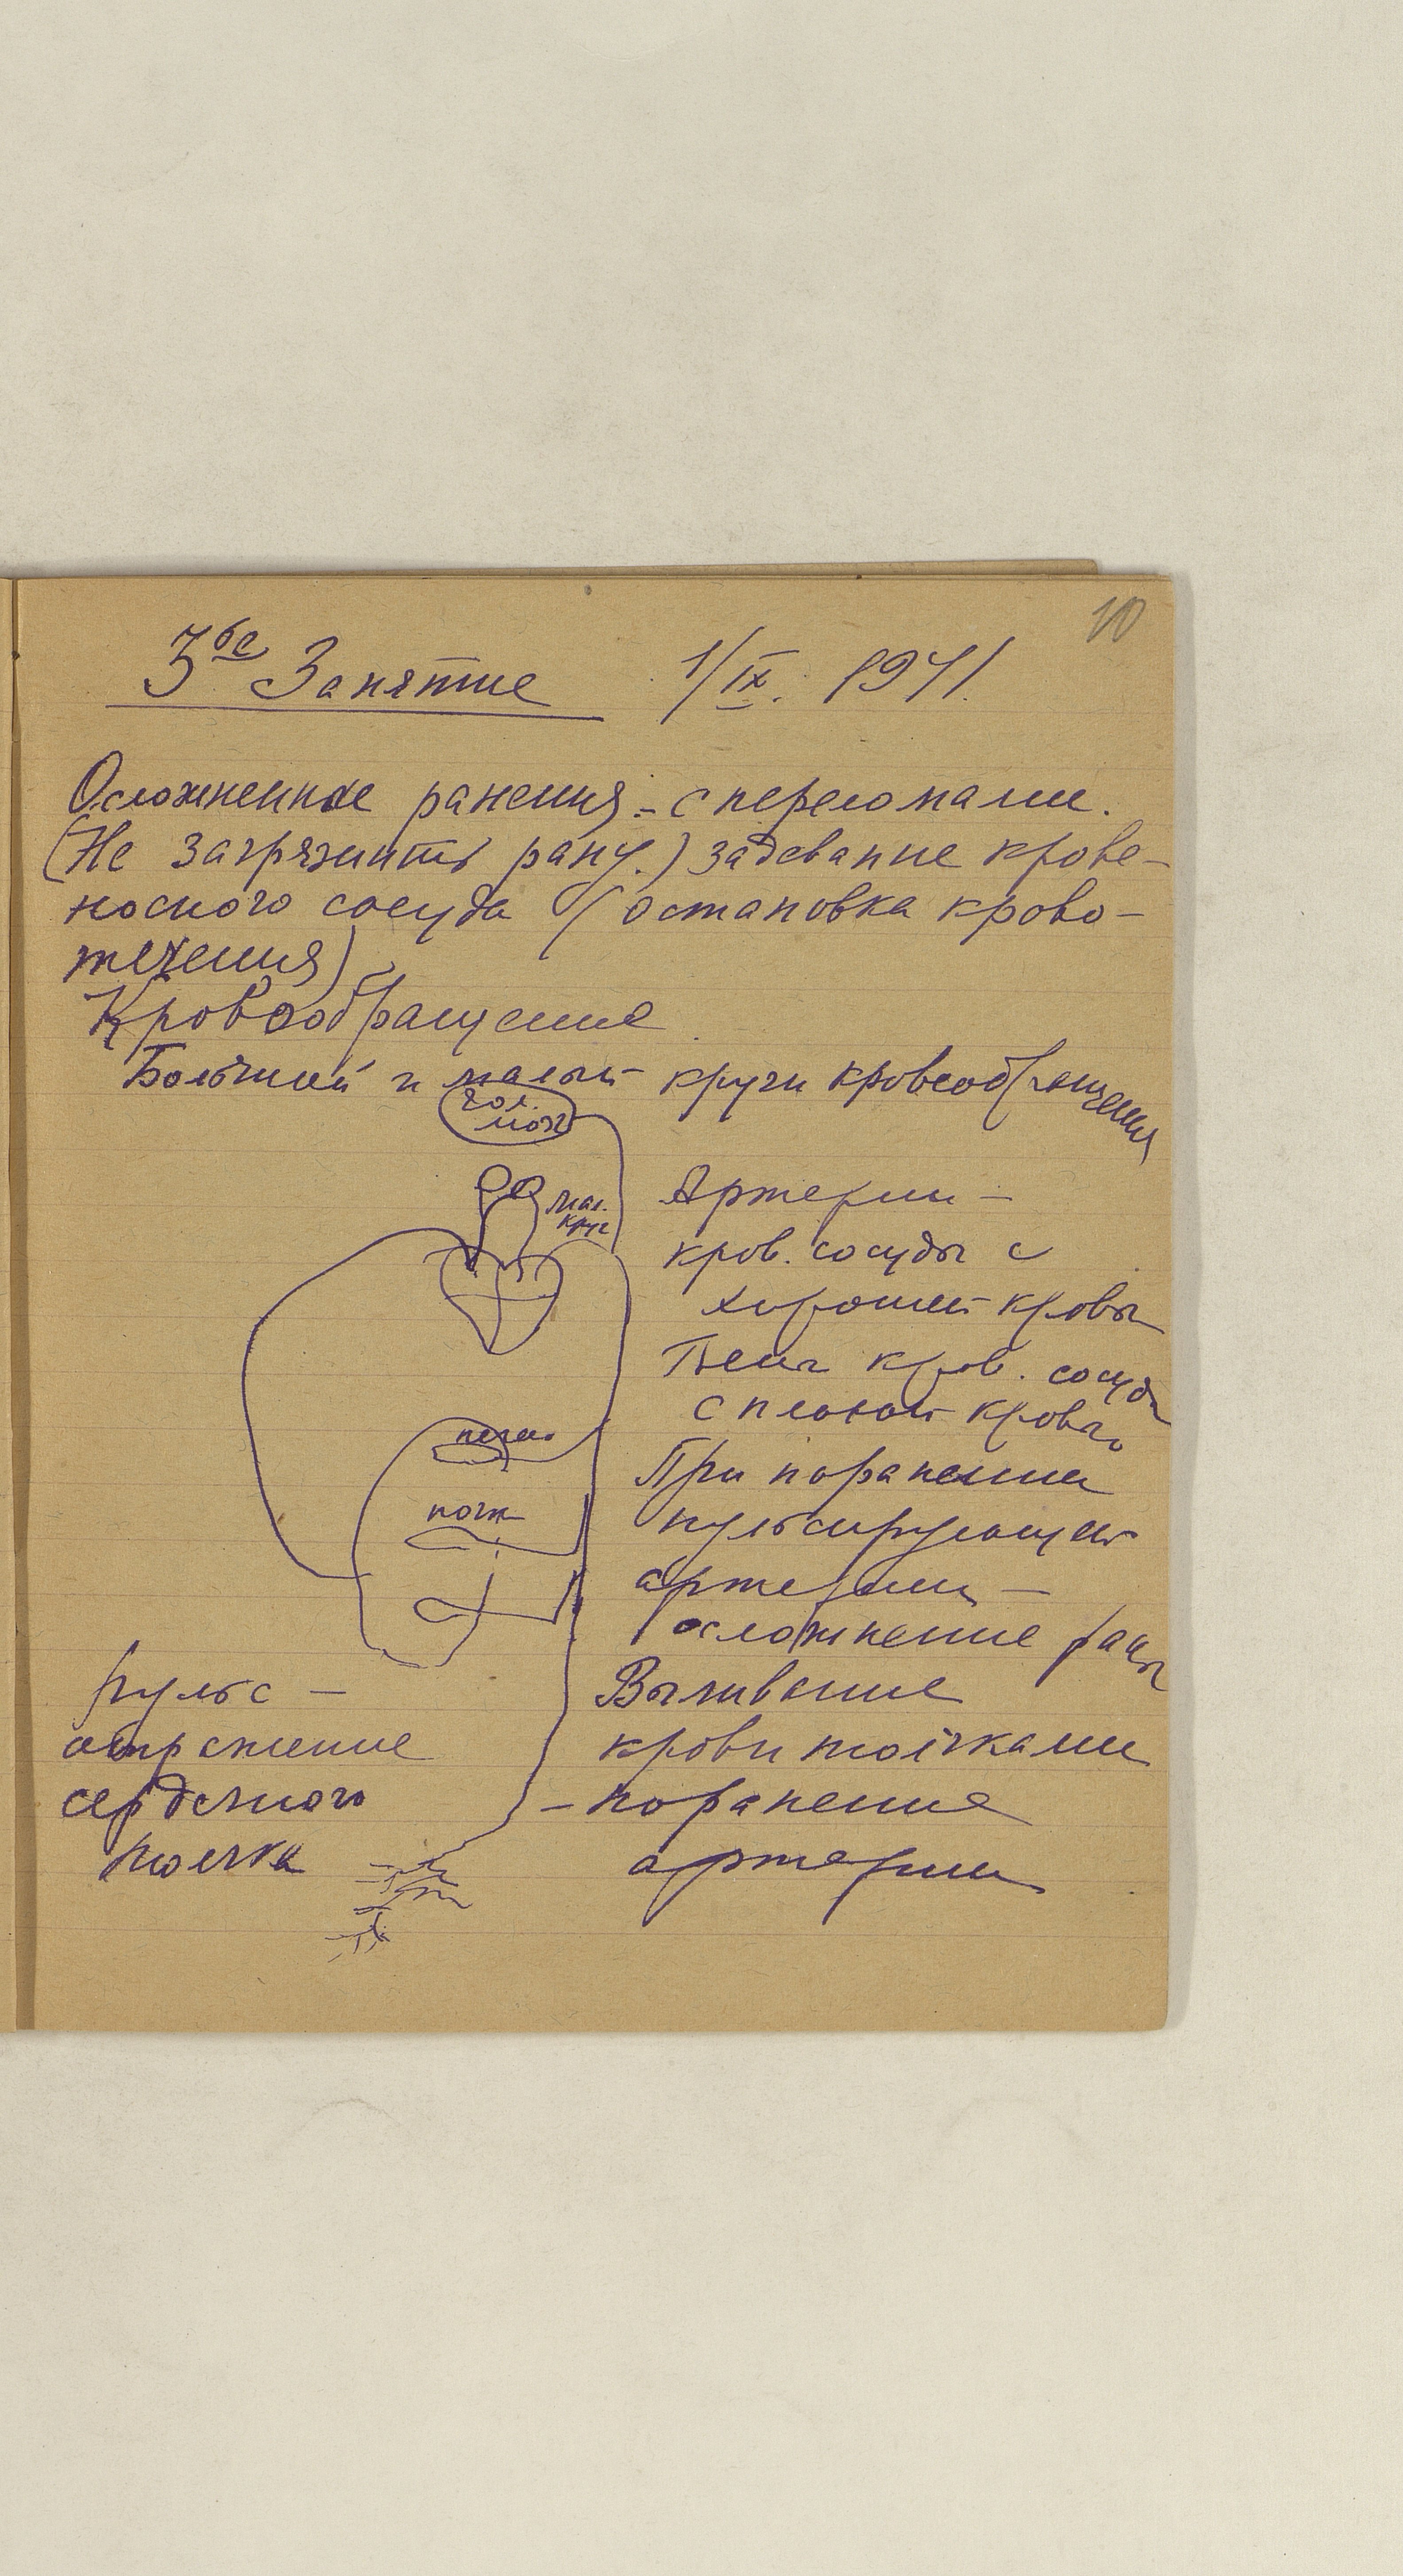 10
3ье Занятие 1/IX. 1941.
Осложненные ранения - с переломами.
(Не загрязнить рану.) задевание крове-
носного сосуда (остановка крово-
течения)
Кровообращение
Большой и малый круги кровообращения
гол.
мозг
мал.
круг
Артерии -
кров. сосуды с
хорошей кровью
Вены кров. сосуды
с плохой кровью
печень
почк
При поранении
пульсирующей
артерии -
осложнение раны
Выливание
крови толчками
- поранение
артерии
Пульс -
отражение
сердечного
толчка